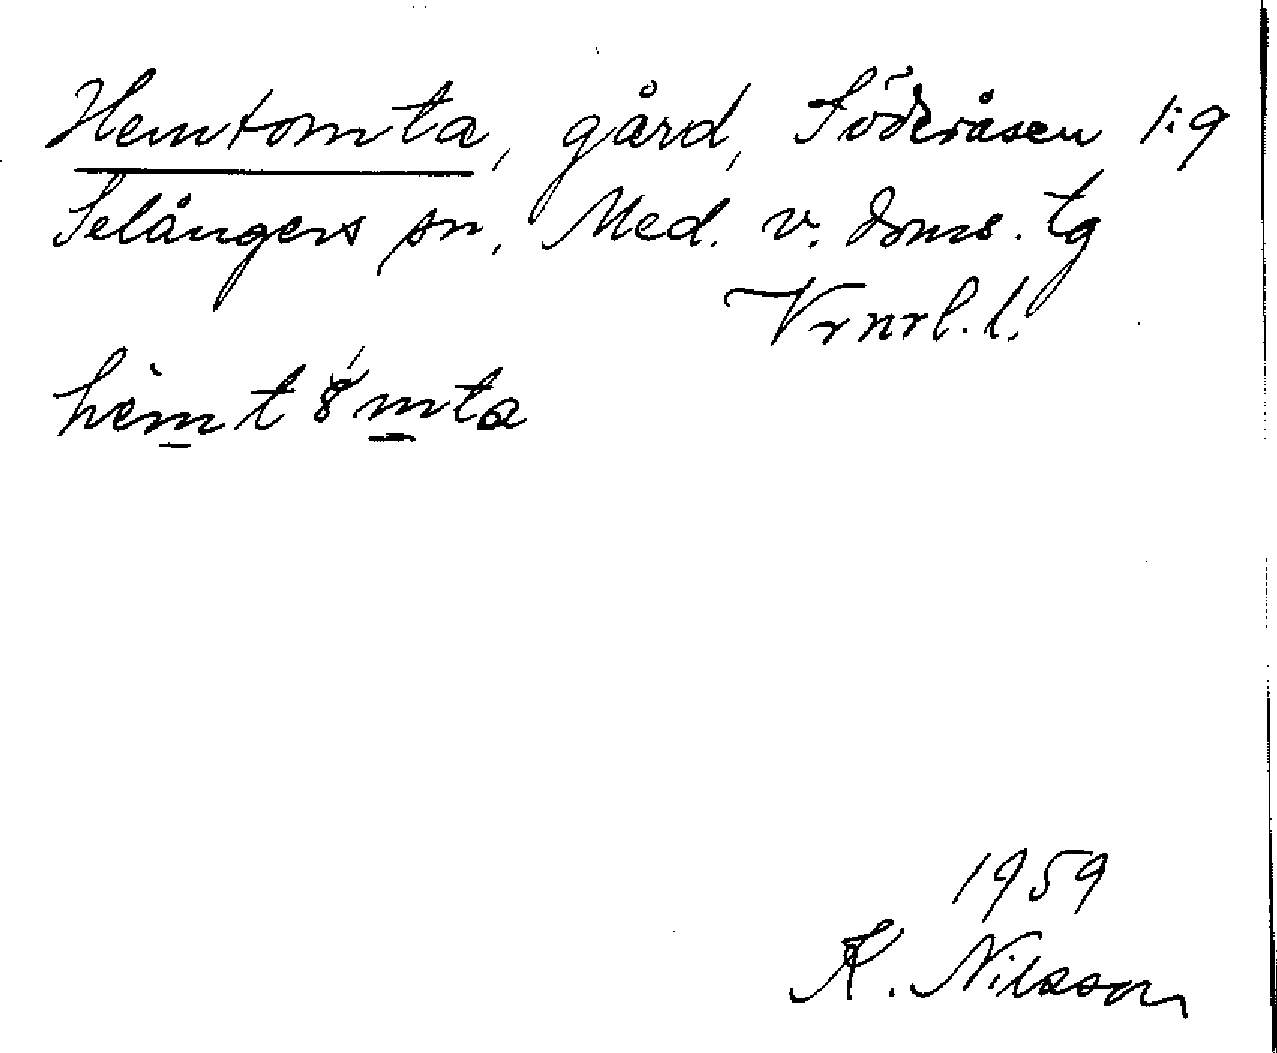 Hemtomta, gård, Söderåsen 1:9
Selångers sn, Med. v. doms. tg
Vrnrl. l.
hèmtǒ́mta
1959
K. Nilsson